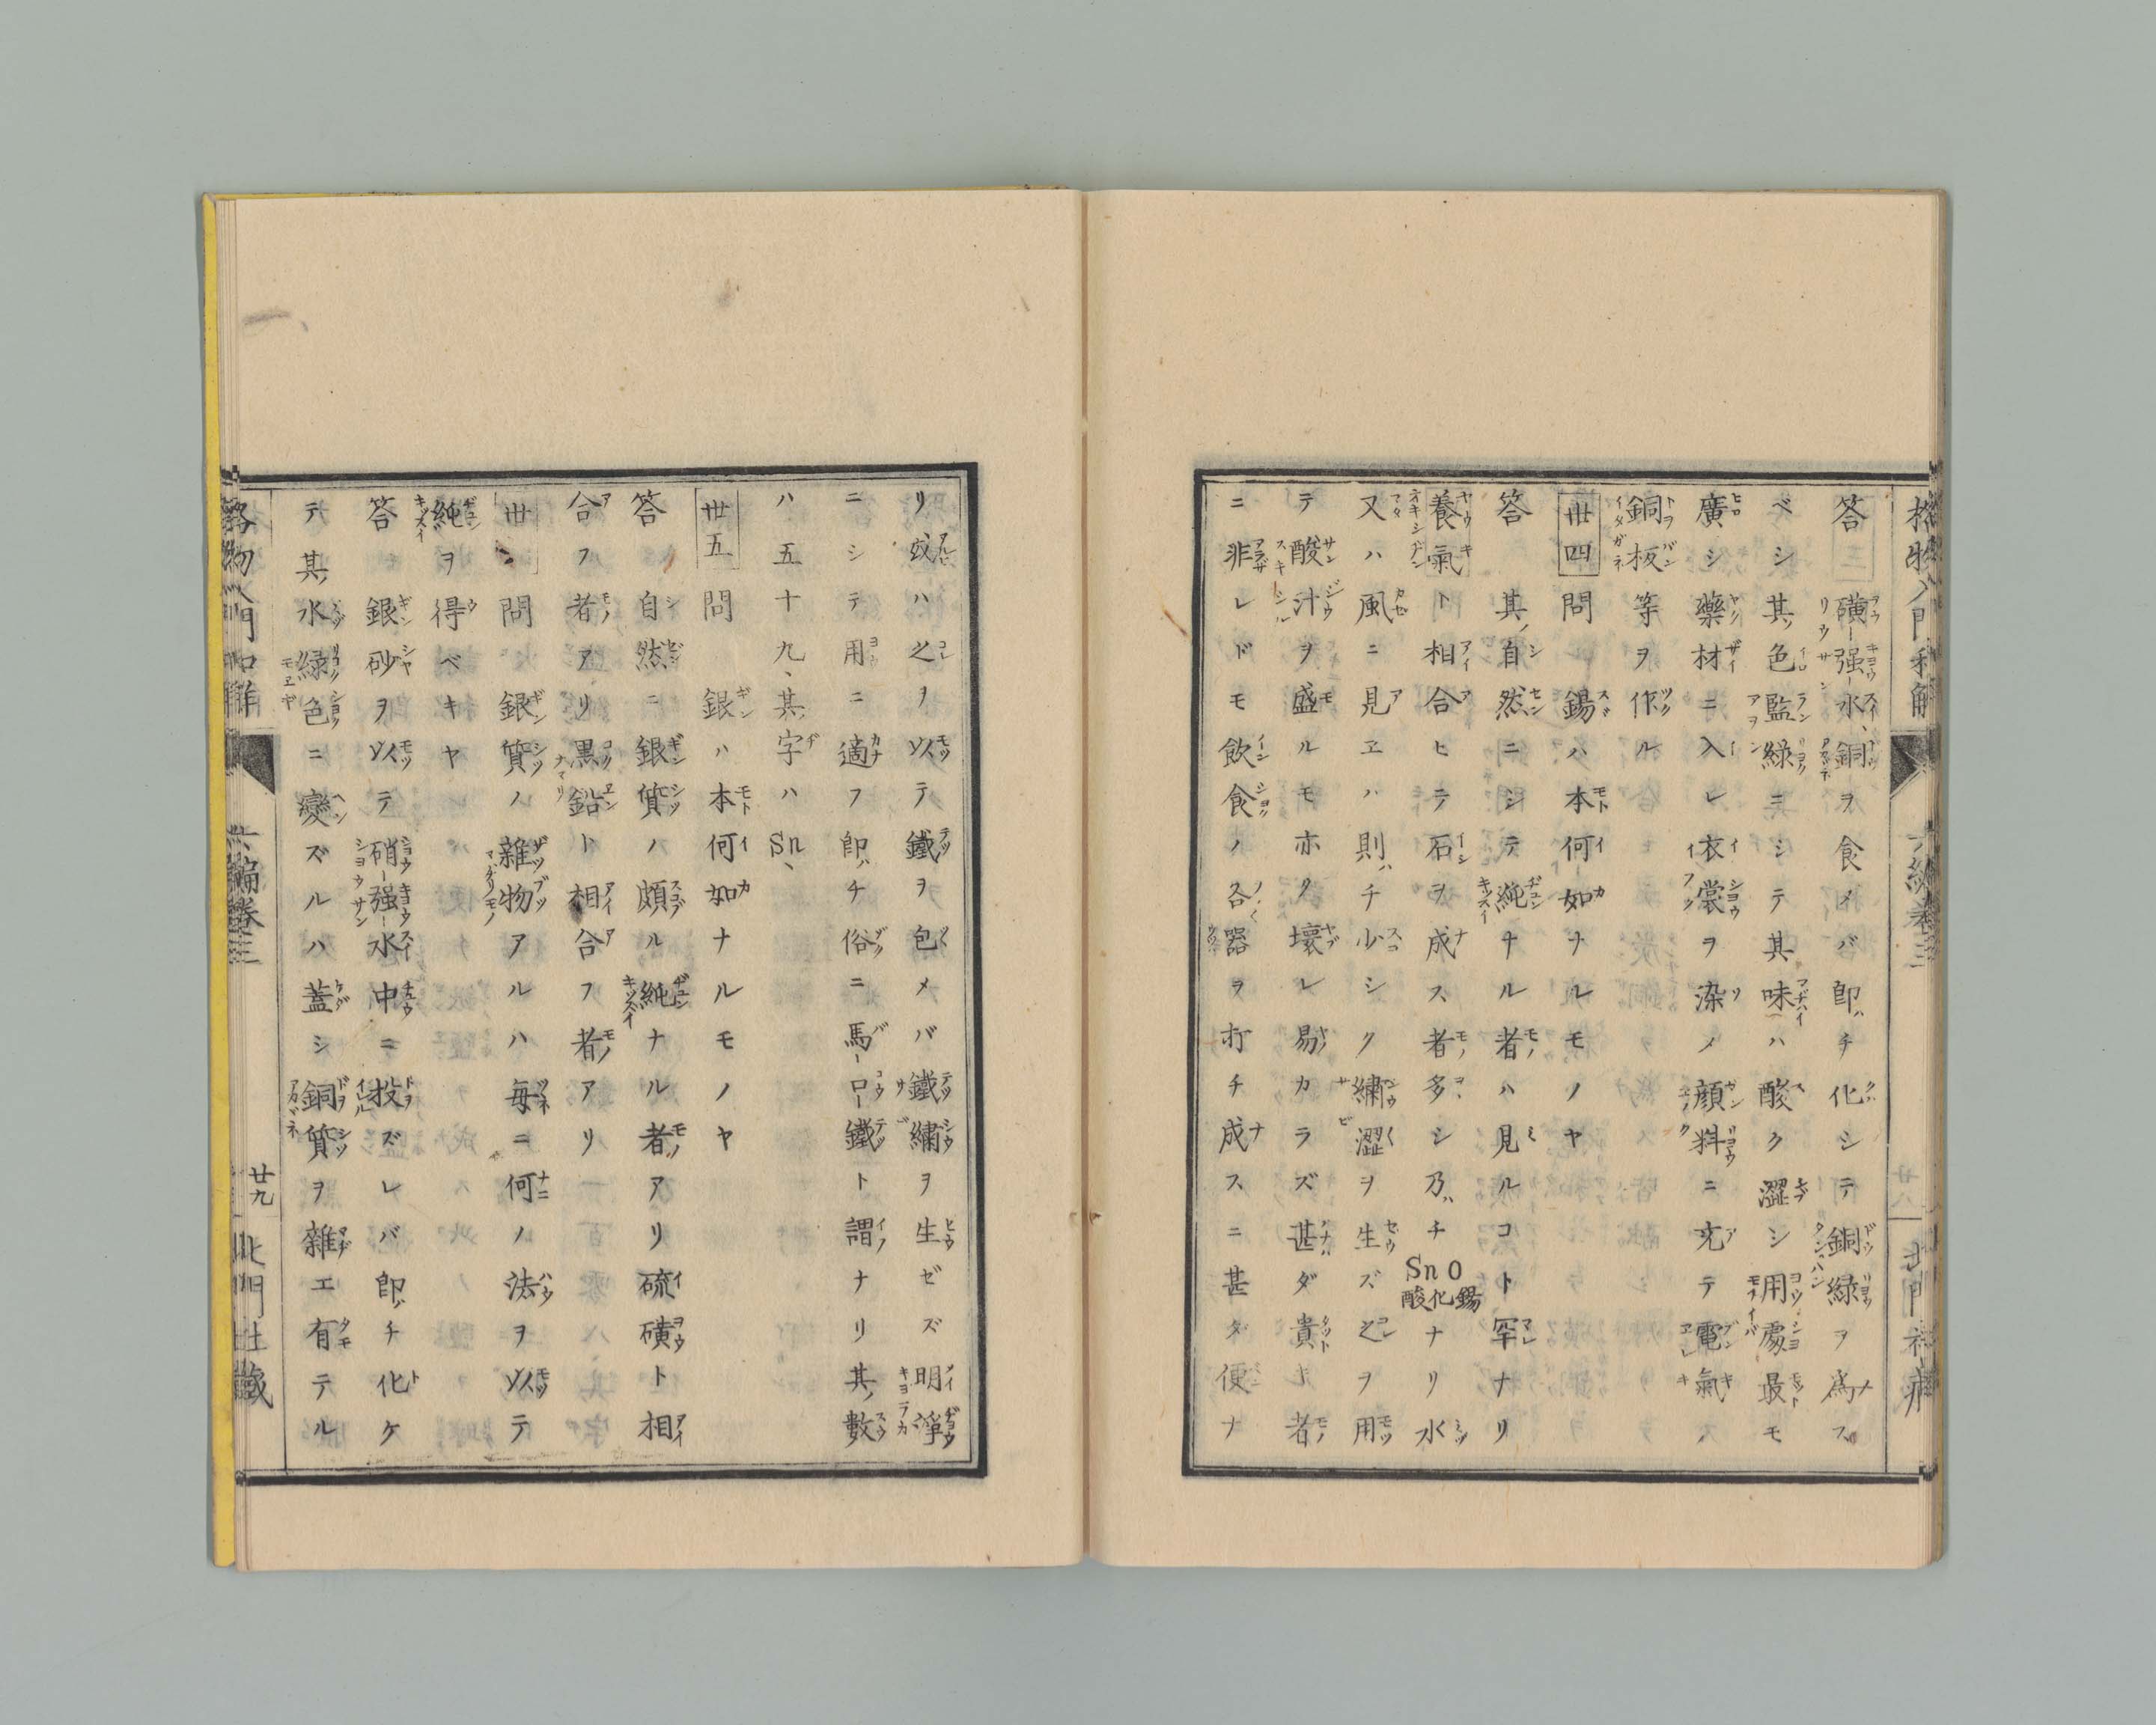 答　磺强水、銅ヲ食メバ即チ化シテ銅綠ヲ爲ス
ベシ其色監綠ニシテ其味ハ酸ク澀シ用處最モ
廣シ藥材ニ入レ衣裳ヲ染メ顔料ニ充テ電氣ノ
銅板等ヲ作ル
丗四問　錫ハ本何如ナルモノヤ
答　其自然ニシテ純ナル者ハ見ルコト罕ナリ
養氣ト相合ヒテ石ヲ成ス者多シ乃チSnO酸化錫ナリ水
又ハ風ニ見エハ則チ少シク繡澀ヲ生ズ之ヲ用
テ酸汁ヲ盛ルモ亦タ壞レ易カラズ甚ダ貴キ者
ニ非レドモ飲食ノ各器ヲ打チ成スニ甚ダ便ナ
リ或ハ之ヲ以テ鐵ヲ包メバ鐵繡ヲ生ゼズ明淨
ニシテ用ニ適フ即チ俗ニ馬口鐵ト謂ナリ其數
ハ五十九、其字ハSn、
丗五問　銀ハ本何如ナルモノヤ
答　自然ニ銀質ノ頗ル純ナル者アリ硫磺ト相
合フ者アリ黒鉛ト相合フ者アリ
丗問　銀質ノ雜物アルハ毎ニ何ノ法ヲ以テ
純ヲ得ベキヤ
答　銀砂ヲ以テ硝强水中ニ投ズレバ即チ化ケ
テ其水綠色ニ變ズルハ蓋シ銅質ヲ雜エ有テル
格物入門和解　六編卷三　廿九　北門社藏